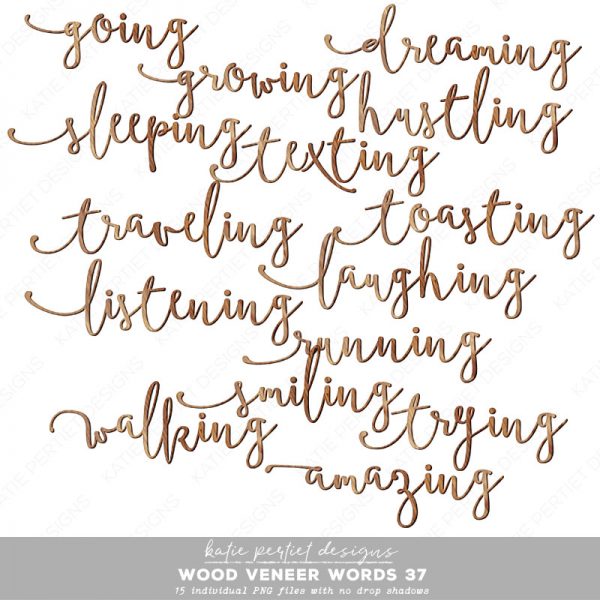 going
dreaming
growing
hustling
sleeping
texting
traveling
toasting
laughing
listening
running
smiling
walking
trying
amazing
katie pertiet designs
WOOD VENEER WORDS 37
15 individual PNG files with no drop shadows